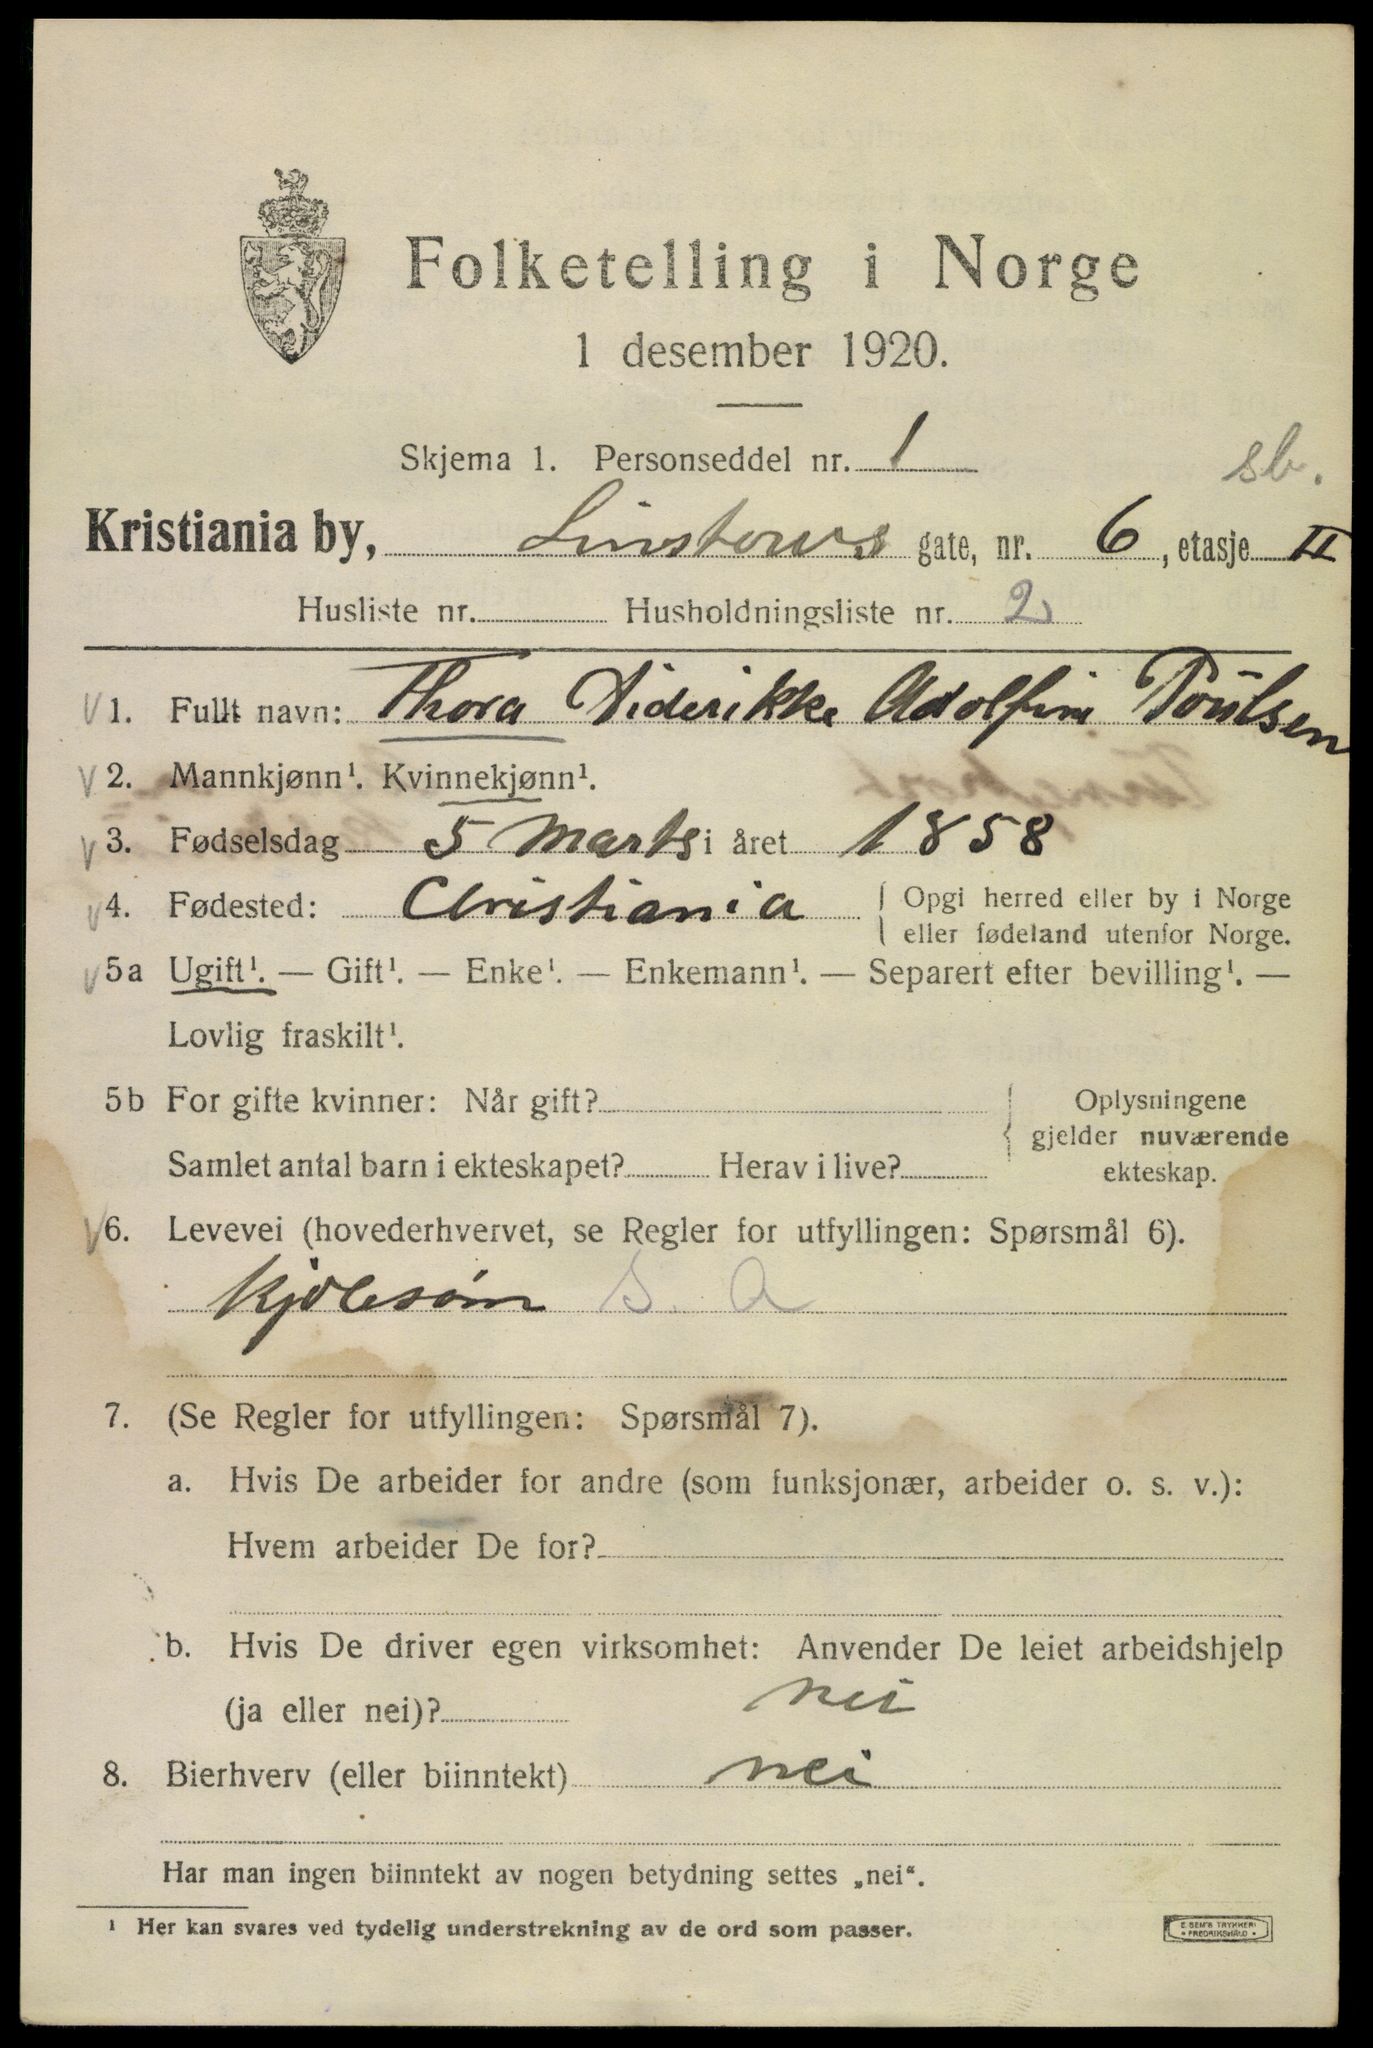 Folketelling i Norge
1 desember 1920.
Skjema 1. Personseddel nr. 1
sb.
Kristiania by, Linstows gate, nr. 6, etasje II
Husliste nr. Husholdningsliste nr. 2
√ 1. Fullt navn: Thora Diderikke Adolfine Poülsen
√ 2. Mannkjønn¹. Kvinnekjønn¹.
√ 3. Fødselsdag 5 Marts i året 1858
√ 4. Fødested: Christiania { Opgi herred eller by i Norge
eller fødeland utenfor Norge.
√ 5a Ugift¹. — Gift¹. — Enke¹. — Enkemann¹. — Separert efter bevilling¹. —
Lovlig fraskilt¹.
5b For gifte kvinner: Når gift? { Oplysningene
gjelder nuværende
Samlet antal barn i ekteskapet? Herav i live? ekteskap.
√ 6. Levevei (hovederhvervet, se Regler for utfyllingen: Spørsmål 6).
Kjolesøm S. A
7. (Se Regler for utfyllingen: Spørsmål 7).
a. Hvis De arbeider for andre (som funksjonær, arbeider o. s. v.):
Hvem arbeider De for?
b. Hvis De driver egen virksomhet: Anvender De leiet arbeidshjelp
(ja eller nei)? nei
8. Bierhverv (eller biinntekt) nei
Har man ingen biinntekt av nogen betydning settes „nei“.
¹ Her kan svares ved tydelig understrekning av de ord som passer.
E. SEM'S TRYKKERI
• FREDRIKSHALD •